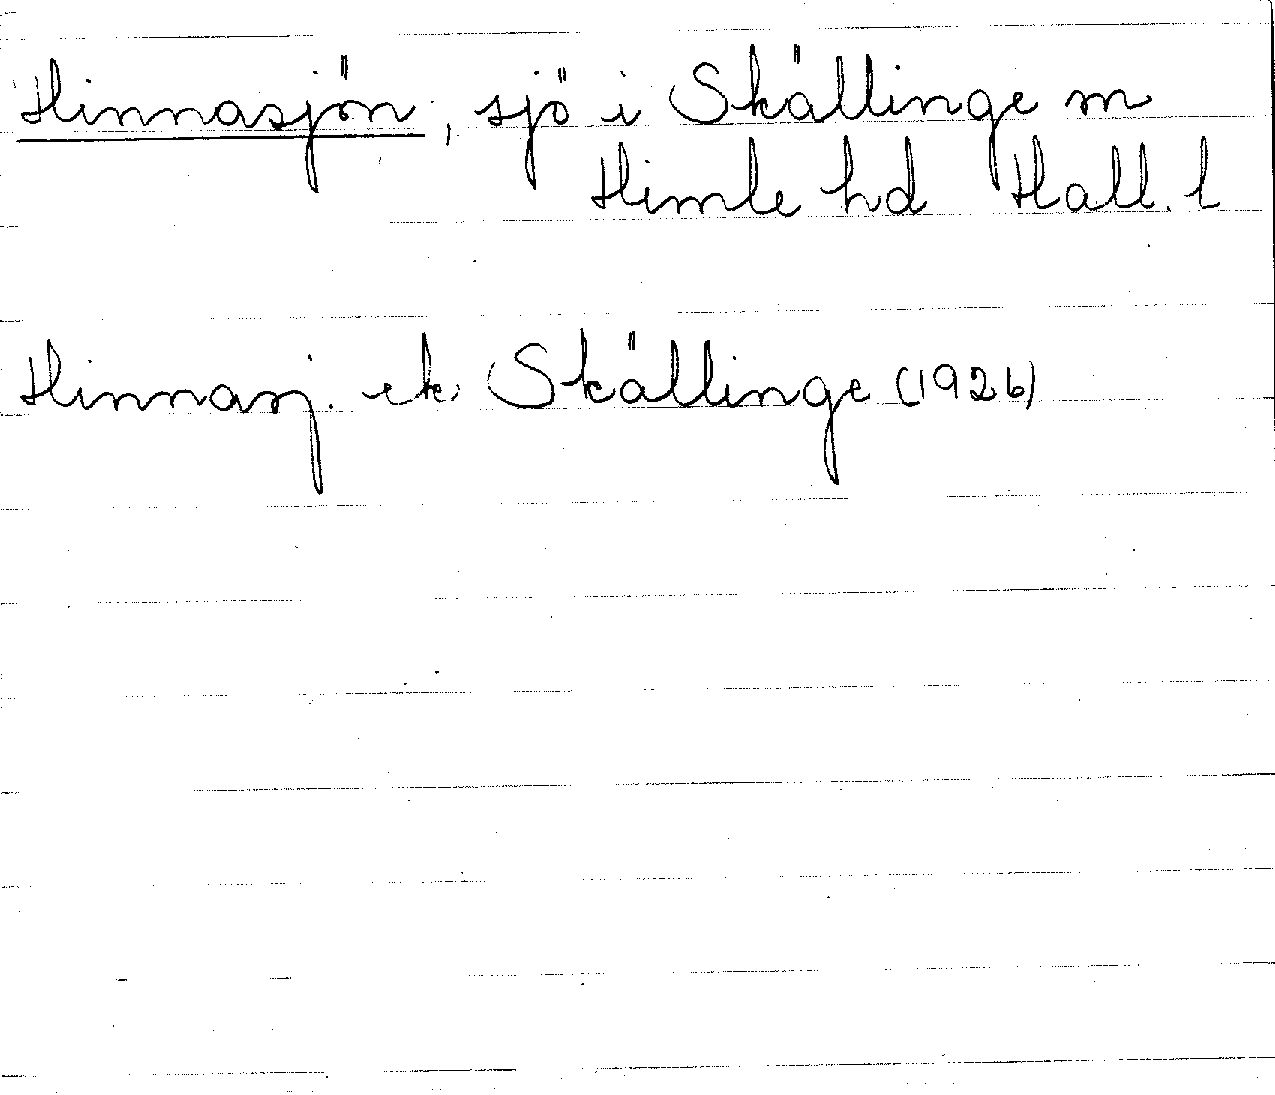 Hinnasjön, sjö i Skällinge sn
Himle hd Hall. l
Hinnasj. ek. Skällinge (1926)